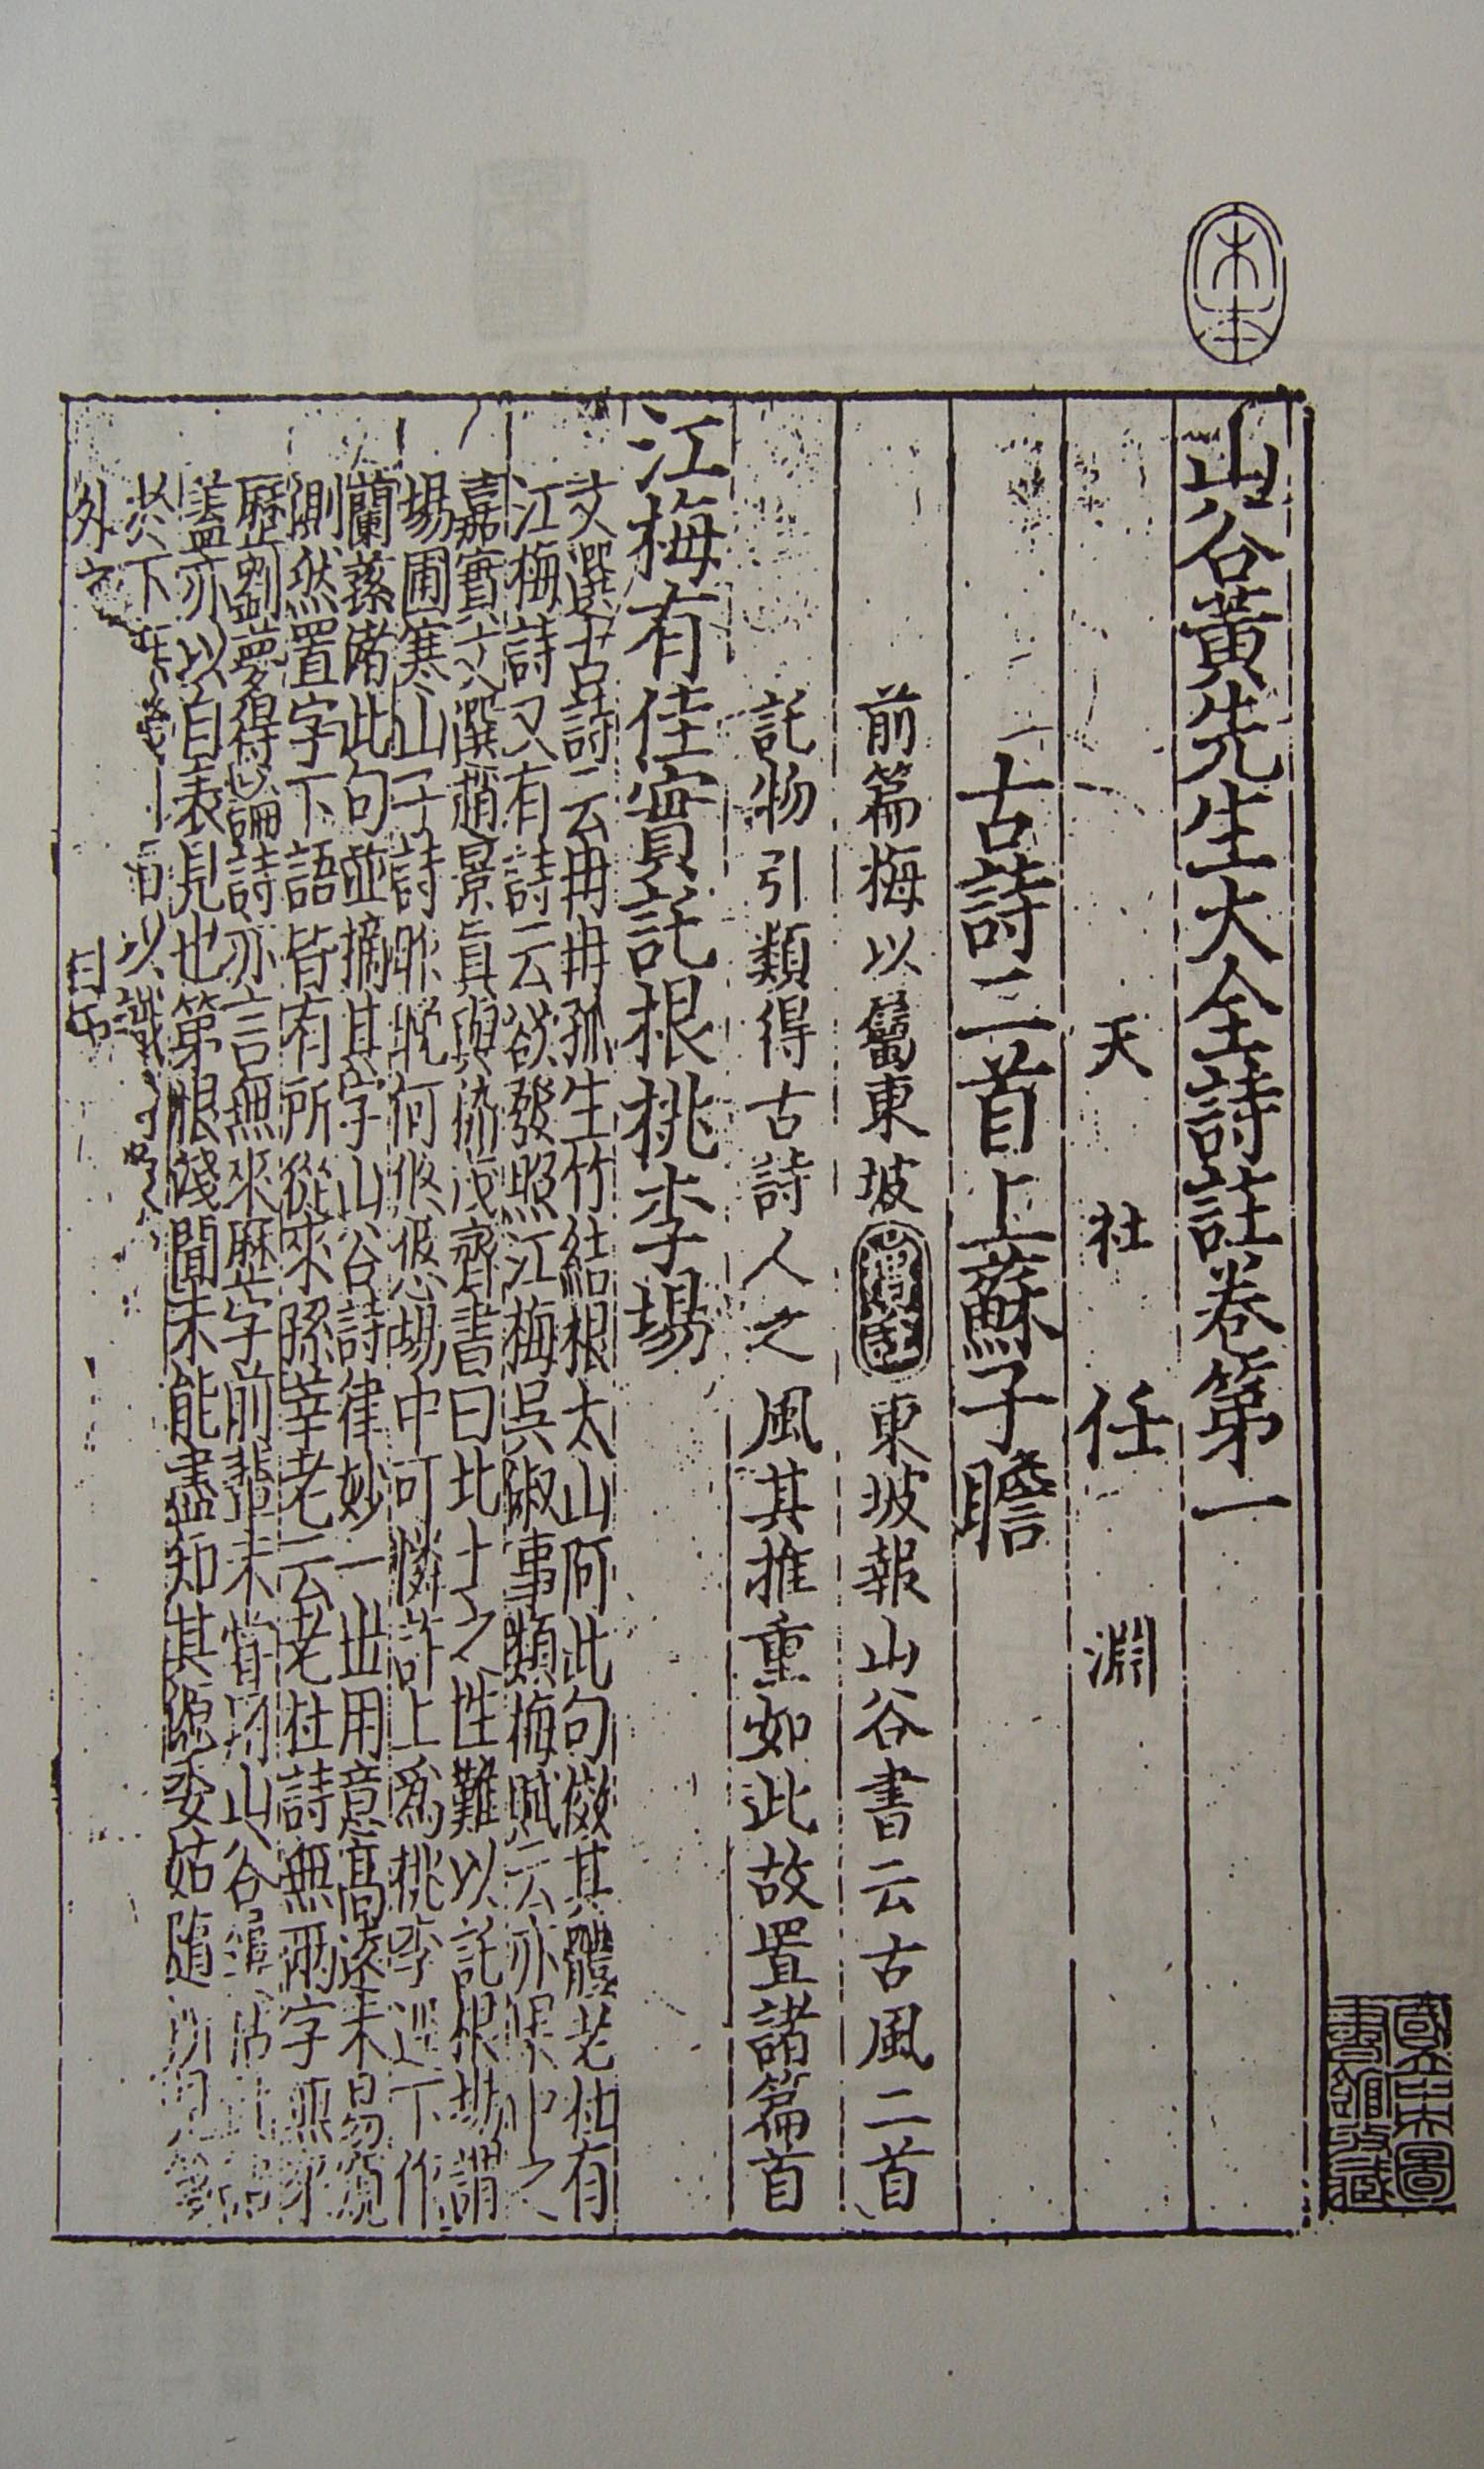 山谷黃先生大全詩註卷第一
天社任淵
古詩二首上蘇子瞻
前篇梅以屬東坡東坡報山谷書云古風二首
託物引類得古詩人之風其推重如此故置諸篇首
江梅有佳實託根桃李場
文選古詩云冉冉孤生竹結根太山阿此句傚其體老杜有
江梅詩又有詩云欲發照江梅吳淑事類梅賦云亦果中之
嘉實文選趙景真與嵇茂齊書曰北土之性難以託根場謂
場圃寒山子詩昨晚何悠悠場中可憐許上爲桃李逕下作
蘭蓀渚此句並摘其字山谷詩律妙一世用意高遠未易窺
測然置字下語皆有所從來孫莘老云老杜詩無兩字無來
歷劉夢得論詩亦言無來歷字前輩未嘗用山谷
蓋亦以自表見也第恨淺聞未能盡知其源委姑隨所見
於下 以識
外云
國立中央圖書館收藏